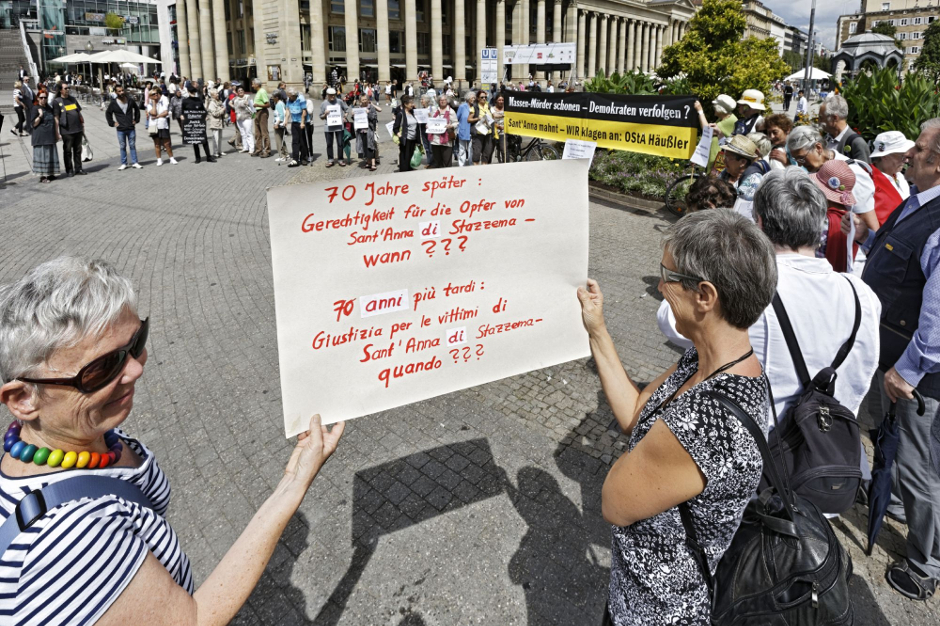 Massen-Mörder schonen – Demokraten verfolgen ?
Sant'Anna mahnt – WIR klagen an: OStA Häußler
70 Jahre später :
Gerechtigkeit für die Opfer von
Sant'Anna di Stazzema –
wann ???
70 anni più tardi :
Giustizia per le vittimi di
Sant'Anna di Stazzema–
quando ???